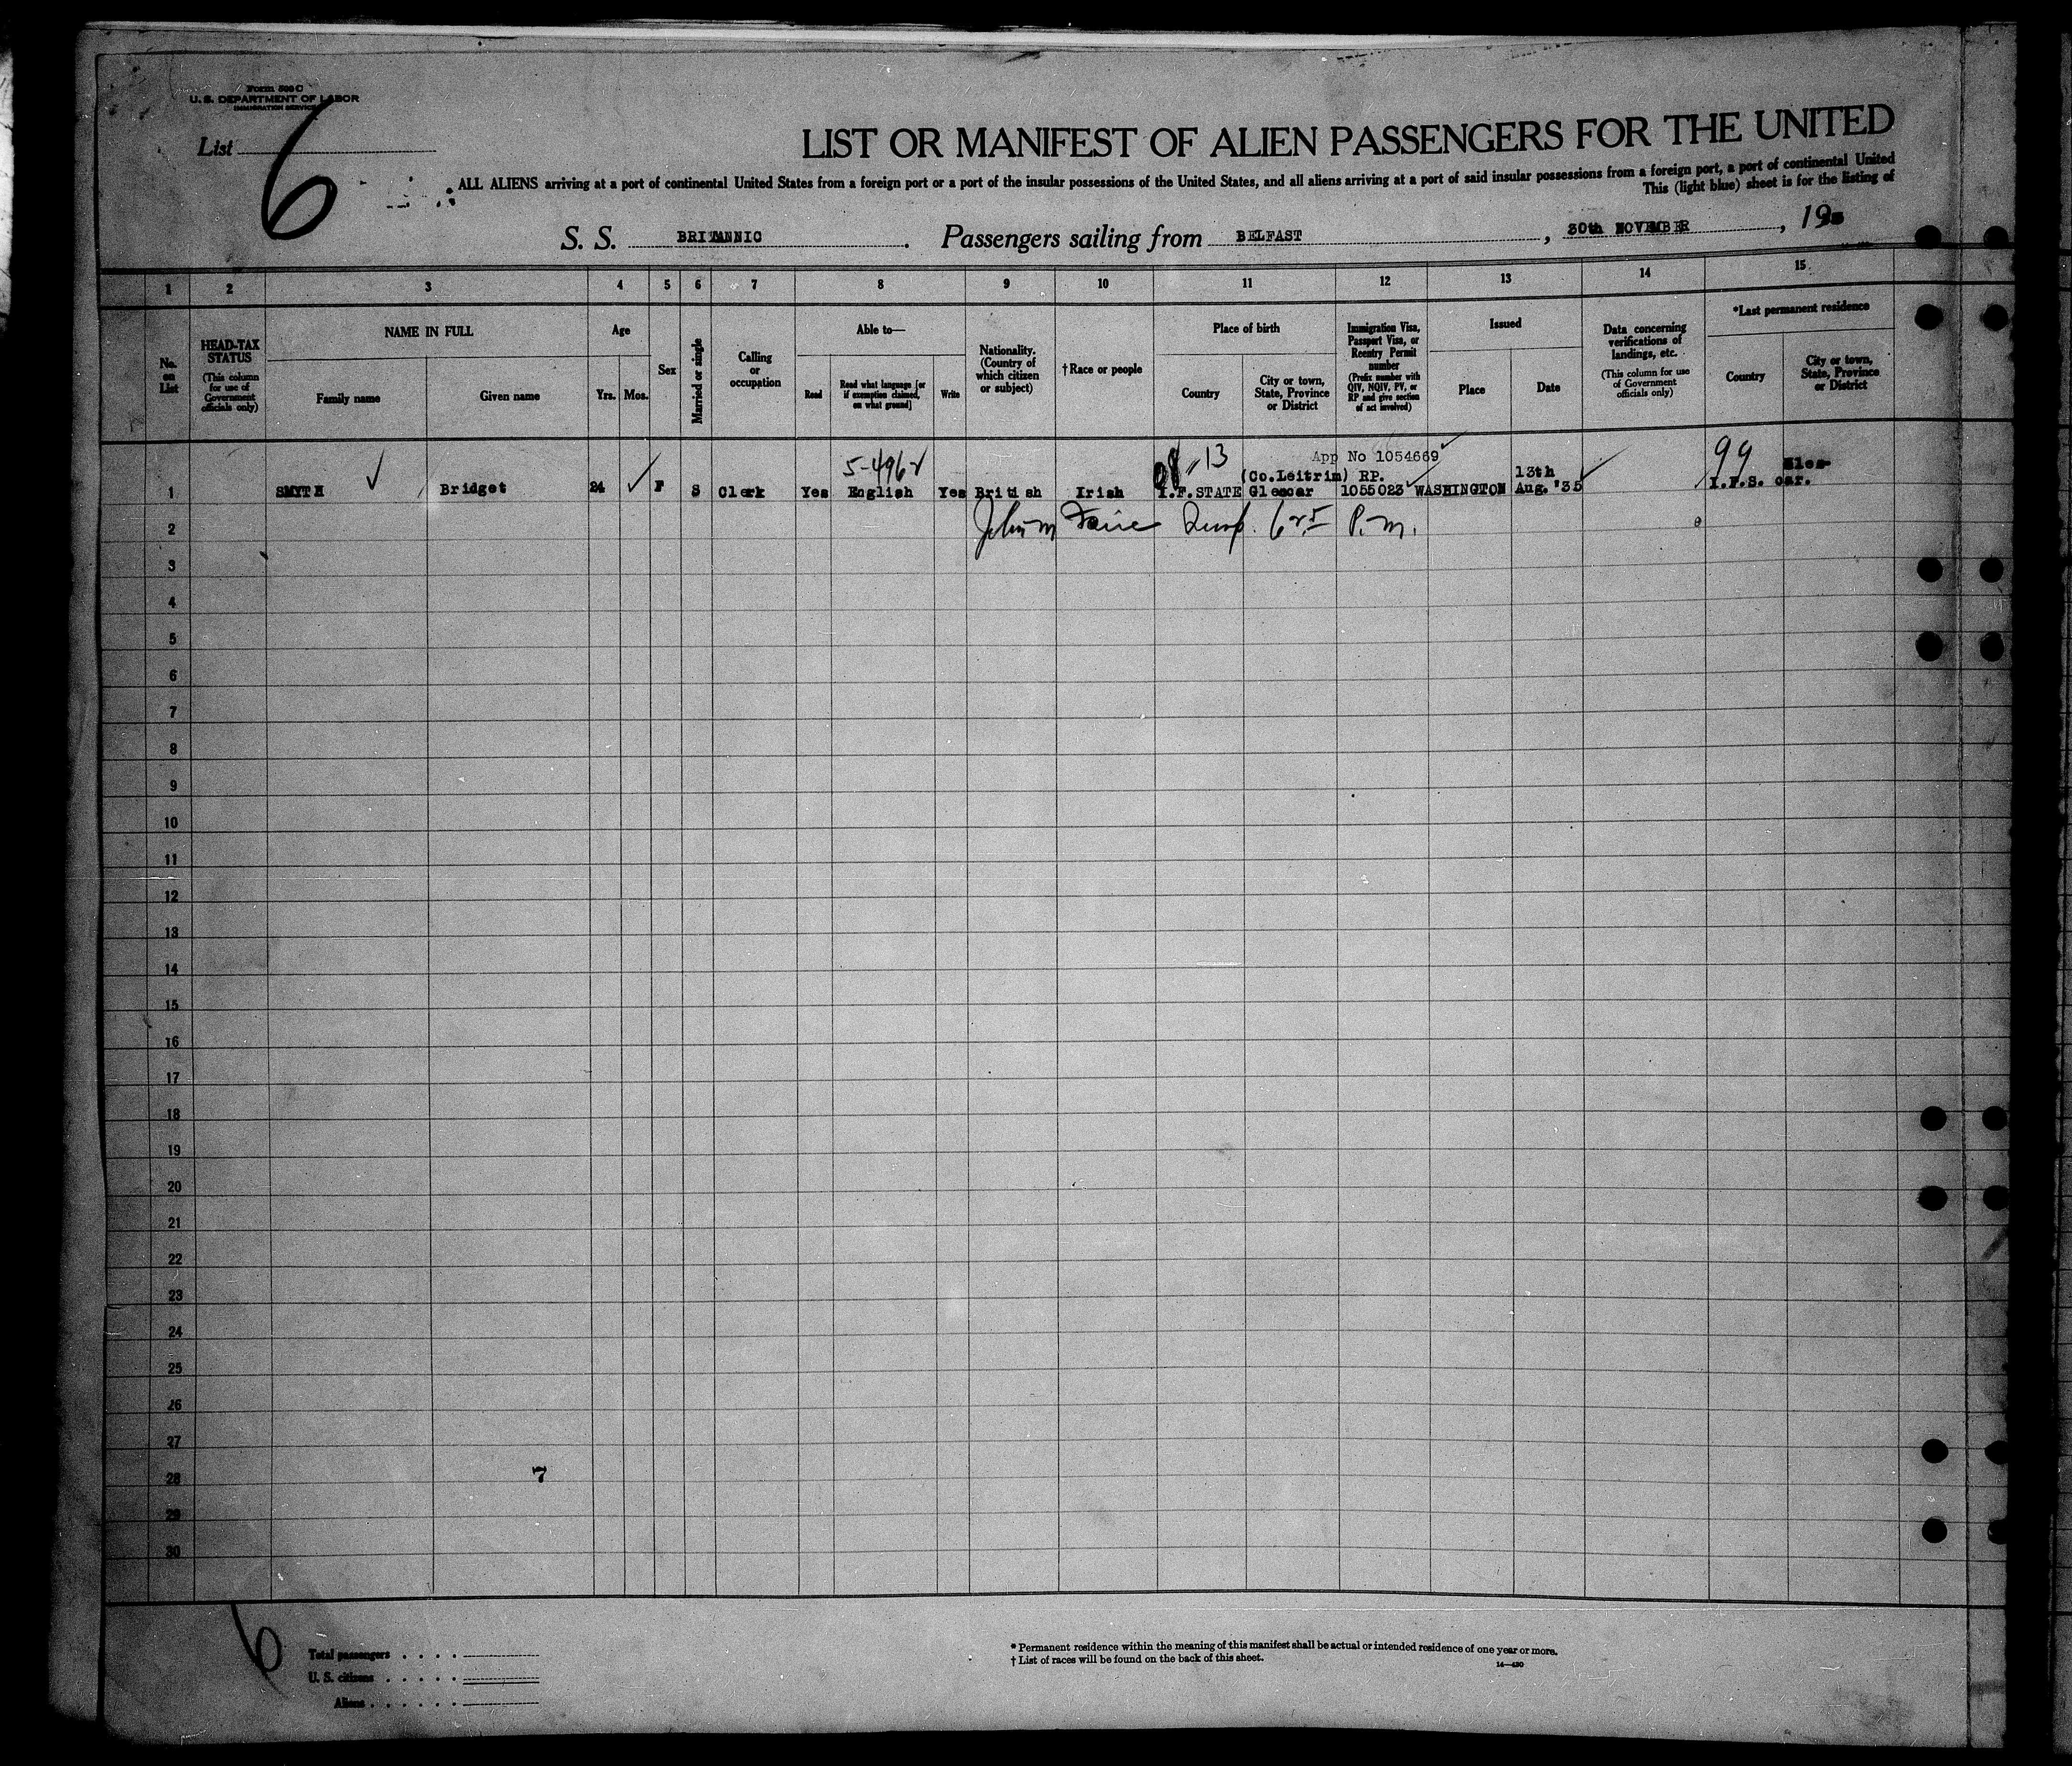 Form 500 C
U. S. DEPARTMENT OF LABOR
IMMIGRATION SERVICE
List 6
LIST OR MANIFEST OF ALIEN PASSENGERS FOR THE UNITED
ALL ALIENS arriving at a port of continental United States from a foreign port or a port of the insular possessions of the United States, and all aliens arriving at a port of said insular possessions from a foreign port, a port of continental United
This (light blue) sheet is for the listing of
S. S. BRITANNIC . Passengers sailing from BELFAST , 30th NOVEMBER , 19
1 2 3 4 5 6 7 8 9 10 11 12 13 14 15
No. on List
HEAD-TAX STATUS (This column for use of Government officials only)
NAME IN FULL
Family name
Given name
Age
Yrs. Mos.
Sex
Married or single
Calling or occupation
Able to—
Read
Read what language [or if exemption claimed, on what ground]
Write
Nationality. (Country of which citizen or subject)
† Race or people
Place of birth
Country
City or town, State, Province or District
Immigration Visa, Passport Visa, or Reentry Permit number (Prefix number with QIV, NQIV, PV, or RP and give section of act involved)
Issued
Place
Date
Data concerning verifications of landings, etc. (This column for use of Government officials only)
*Last permanent residence
Country
City or town, State, Province or District
5-496 13 App No 1054669 99
(Co.Leitrim) RP. 13th
1 SMYTH Bridget 24 F S Clerk Yes English Yes British Irish I.F.STATE Glencar 1055023 WASHINGTON Aug.'35 I.F.S. car.
2 John m P.m.
3
4
5
6
7
8
9
10
11
12
13
14
15
16
17
18
19
20
21
22
23
24
25
26
27
28 7
29
30
6
Total passengers . . . .
U. S. citizens . . . . .
Aliens . . . . . .
* Permanent residence within the meaning of this manifest shall be actual or intended residence of one year or more.
† List of races will be found on the back of this sheet.
14—430